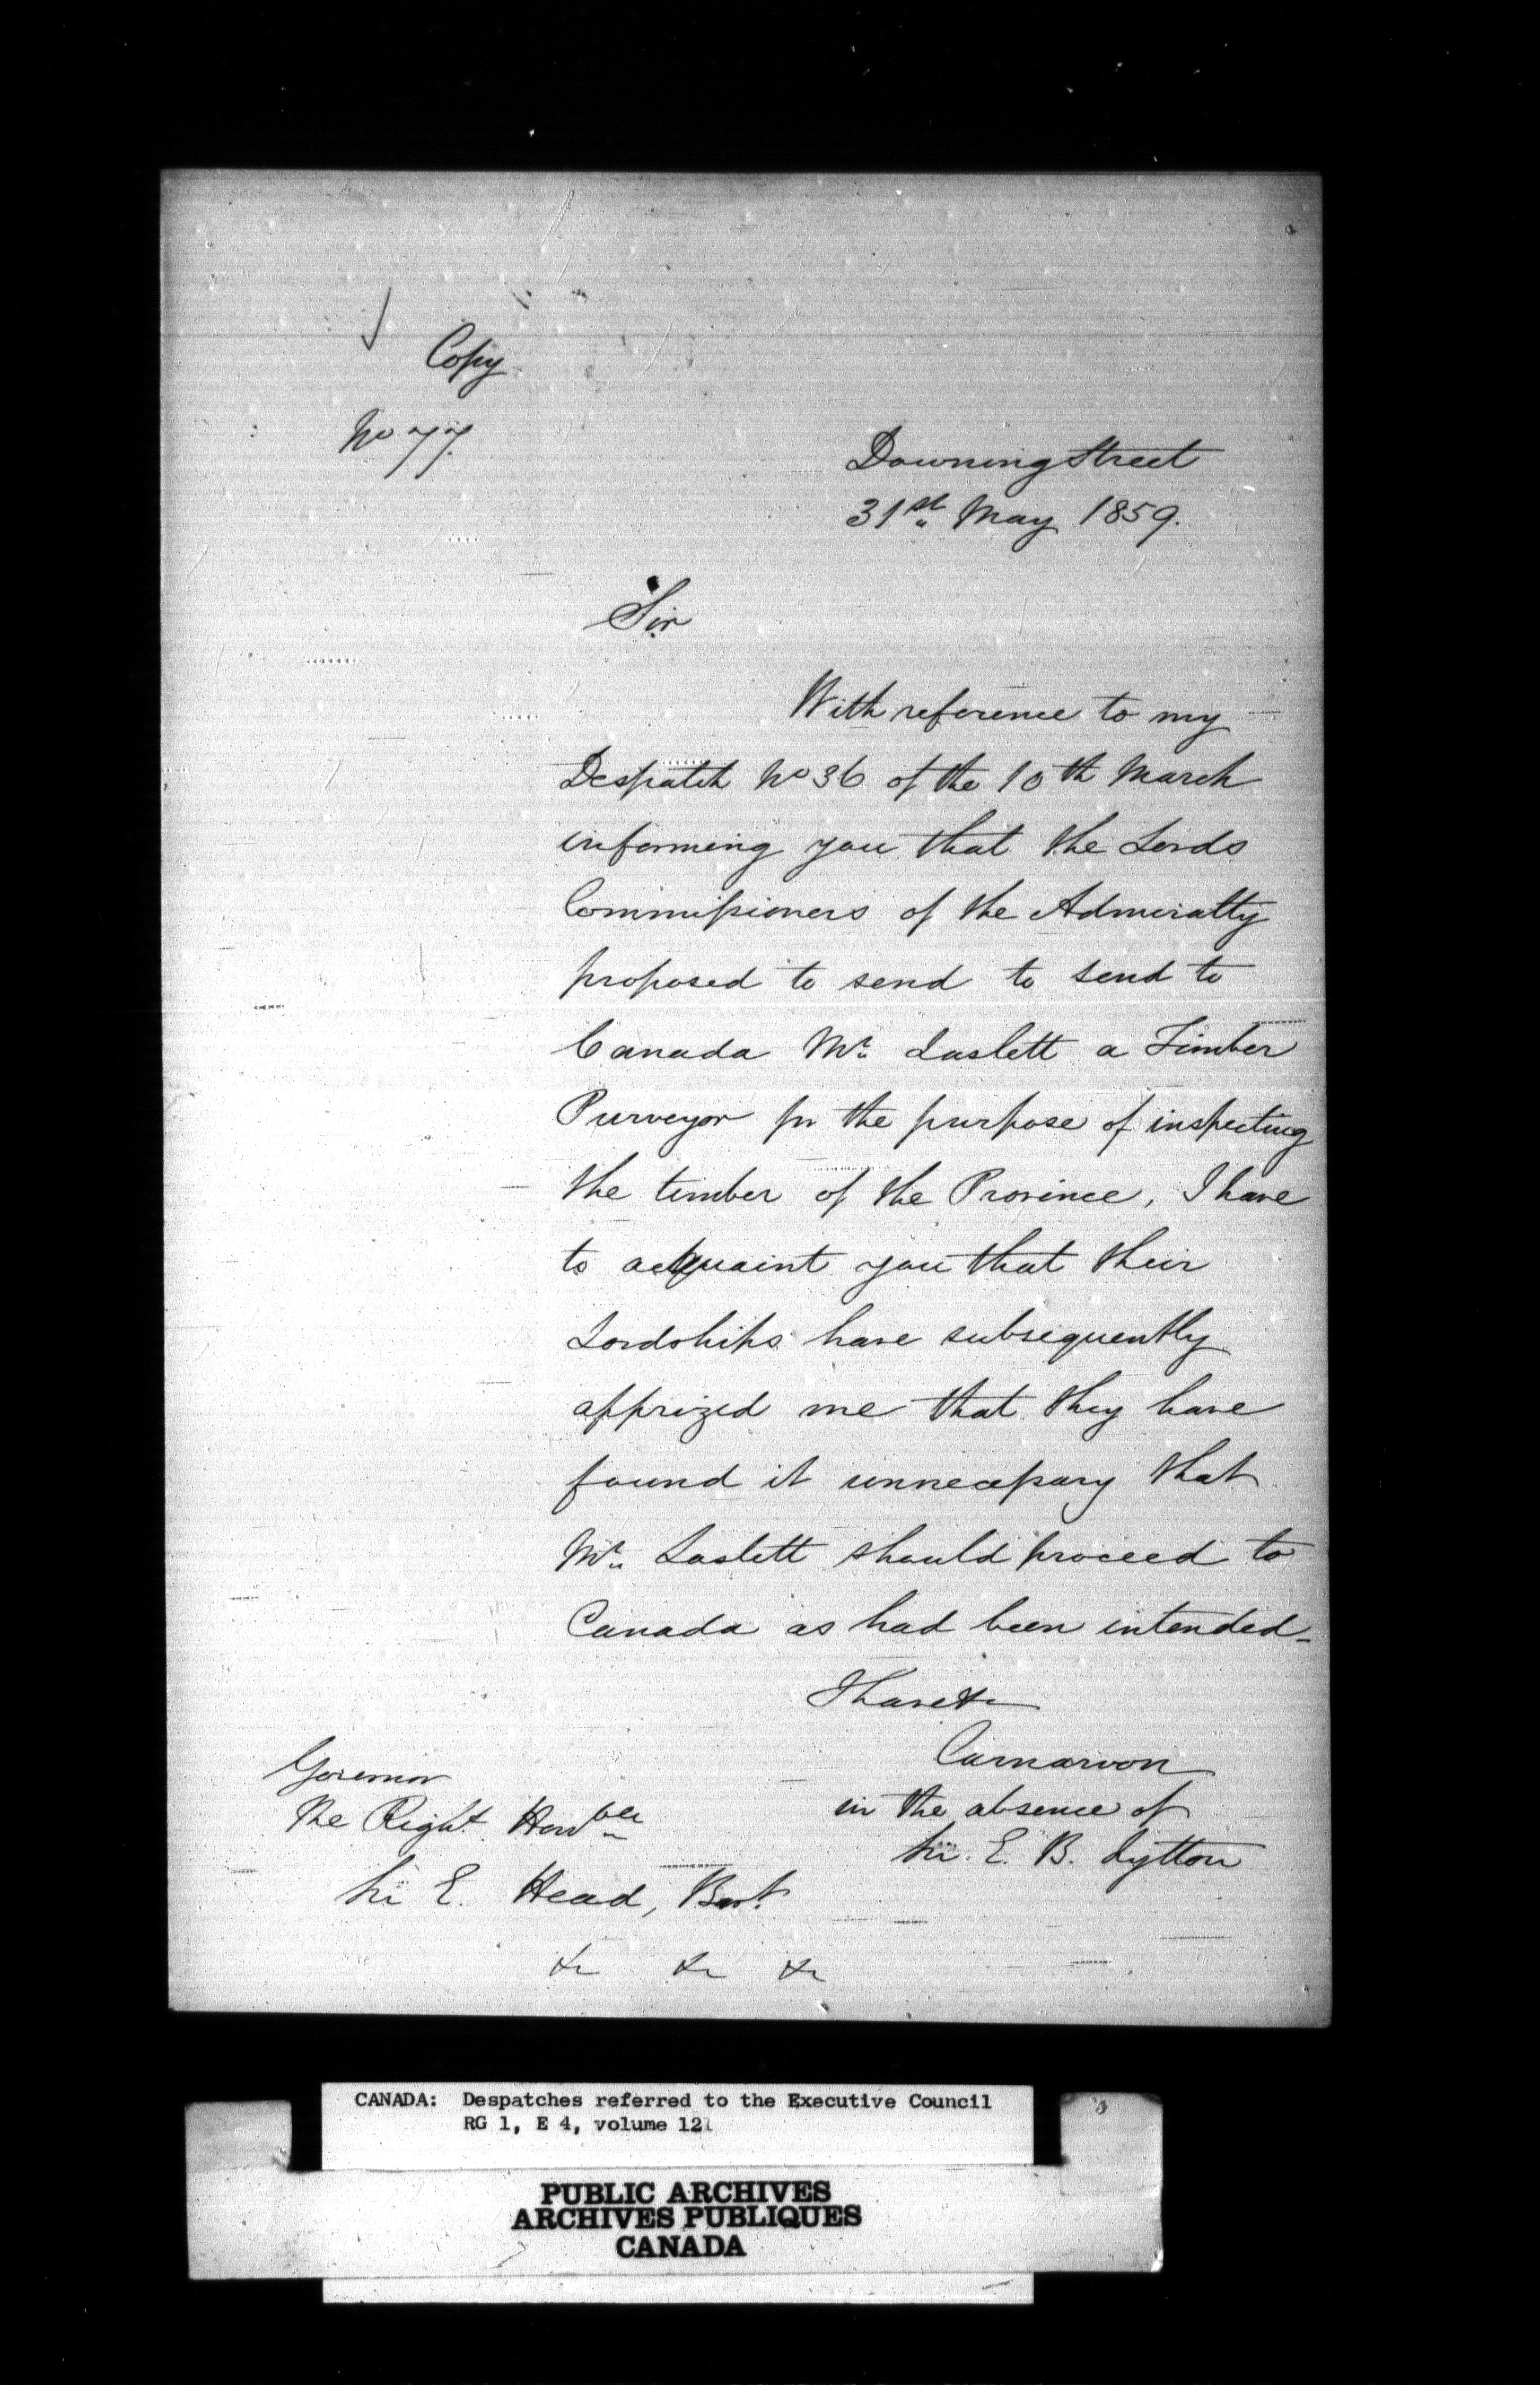 Copy
No 77.
Downing Street
31st May 1859.
Sir
With reference to my
Despatch No 36 of the 10th March
informing you that the Lords
Commissioners of the Admiralty
proposed to send to send to
Canada Mr. Laslett a Timber
Purveyor for the purpose of inspecting
the timber of the Province, I have
to acquaint you that their
Lordships have subsequently
apprized me that they have
found it unnecessary that
Mr. Laslett should proceed to
Canada as had been intended-
I have &c
Carnarvon
in the absence of
Sir. E. B. Lytton
Governor
The Right Honble
Sir E. Head, Bart.
&c &c &c
CANADA: Despatches referred to the Executive Council
RG 1, E 4, volume 121
PUBLIC ARCHIVES
ARCHIVES PUBLIQUES
CANADA